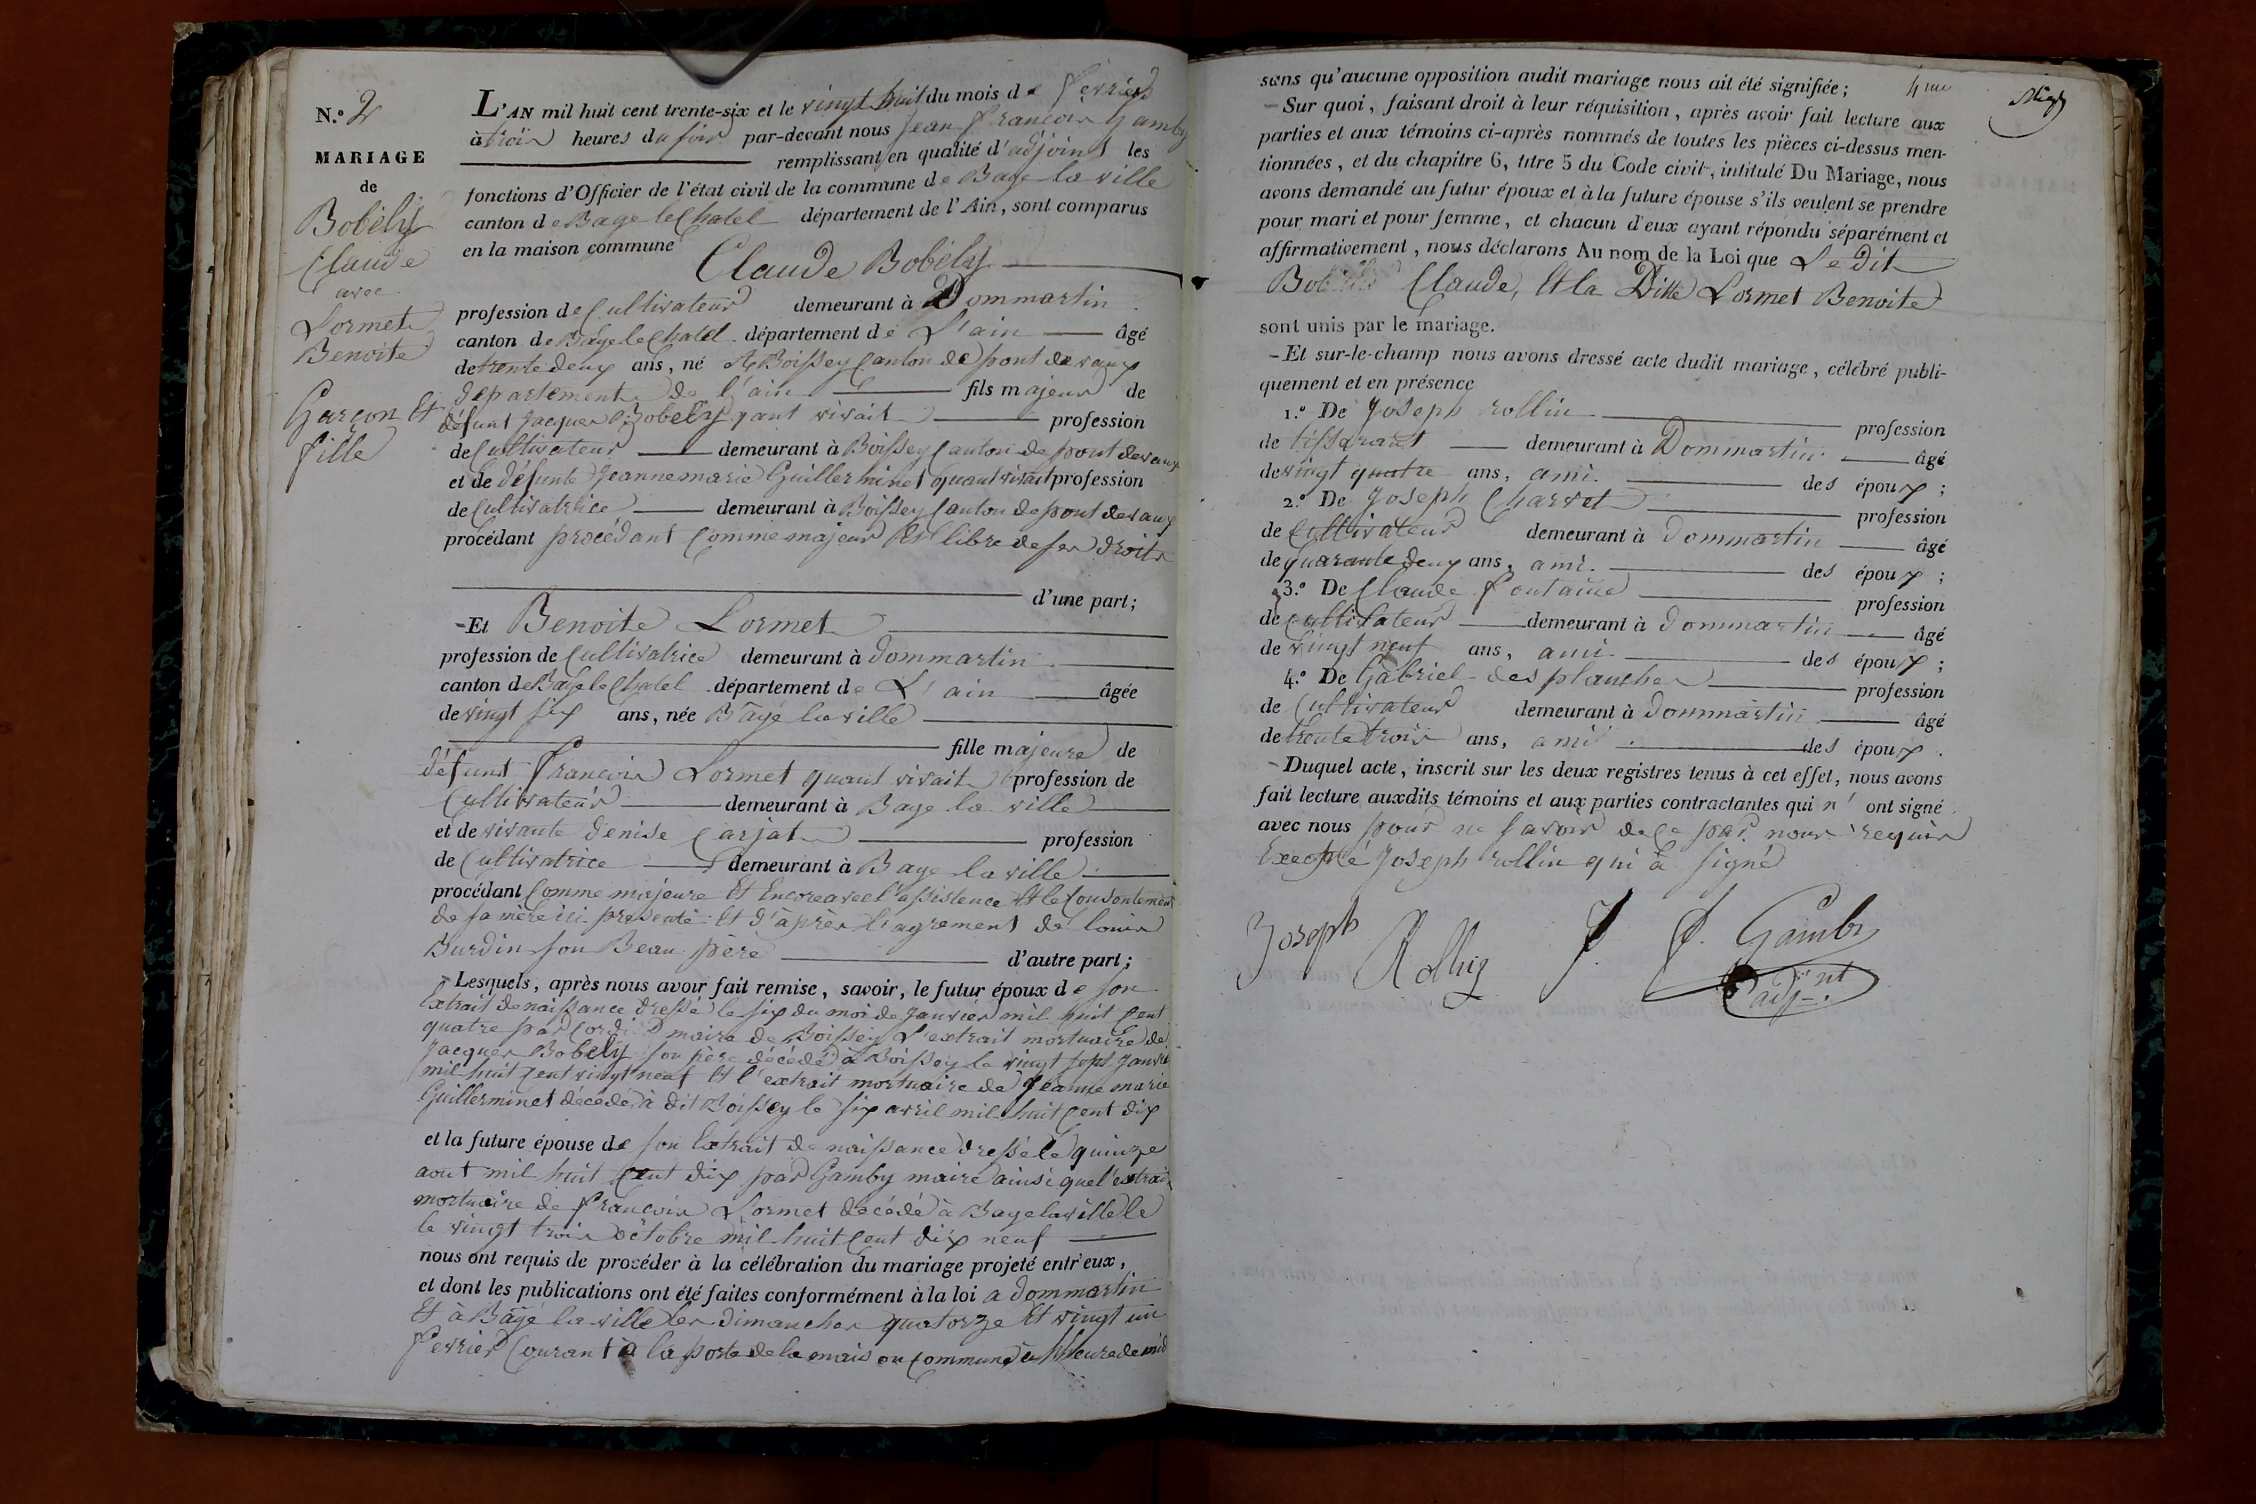 N.º 2
MARIAGE
de
Bobély
Claude
avec
Lormet
Benoite
Garçon Et
fille
L'AN mil huit cent trente-six et le vingt huit du mois de février
à trois heures du soir par-devant nous jean francois Gamby
remplissant en qualité d'adjoint les
fonctions d'Officier de l'état civil de la commune de Bage la ville
canton de Bage le Chatel département de l'Ain, sont comparus
en la maison commune Claude Bobély
profession de Cultivateur demeurant à Dommartin
canton de Bâge le Chatel département de L'ain âgé
de trente deux ans, né A Boissey Canton de pont de vaux
departement de l'ain fils majeur de
défunt jacques Bobely qant vivait profession
de Cultivateur demeurant à Boissey Canton de pont devaux
et de défunte jeanne marie Guillerminet quant vivait profession
de Cultivatrice demeurant à Boissey Canton de pont devaux
procédant procédant Comme majeur Et libre de ses droits
d'une part;
-Et Benoite Lormet
profession de Cultivatrice demeurant à dommartin
canton de Bage le Chatel département de L'ain âgée
de vingt six ans, née Bâgé la ville
fille majeure de
défunt francois Lormet quant vivait profession de
Cultivateur demeurant à Bage la ville
et de vivante denise Carjat profession
de Cultivatrice demeurant à Bage la ville
procédant Comme majeure Et Encore avec l'assistence Et le Consentement
de sa mère ici présente Et d'après l'agrement de louis
Burdin son Beau père d'autre part;
- Lesquels, après nous avoir fait remise, savoir, le futur époux de son
Extrait de naissance dressé le six du moi de janvier mil huit Cent
quatre par maire de Boissey L'extrait mortuaire de
jacques Bobely son père décédé à Boissey le vingt sept janvier
mil huit Cent vingt neuf Et l'extrait mortuaire de jéanne marie
Guillerminet décédé à dit Boissey le six avril mil huit Cent dix
et la future épouse de son Extrait de naissance dressé le quinze
aout mil huit Cent dix par Gamby maire ainsi que l'extrait
mortuaire de francois Lormet décédé à Bage laville le
le vingt trois octobre mil huit Cent dix neuf
nous ont requis de procéder à la célébration du mariage projeté entr'eux,
et dont les publications ont été faites conformément à la loi a dommartin
Et à Bâgé la ville les dimanches quatorze Et vingt un
fevrier Courant à la porte de la maison commune à l'heure de midi
4me
sans qu'aucune opposition audit mariage nous ait été signifiée;
- Sur quoi, faisant droit à leur réquisition, après avoir fait lecture aux
parties et aux témoins ci-après nommés de toutes les pièces ci-dessus men-
tionnées, et du chapitre 6, titre 5 du Code civil, intitulé Du Mariage, nous
avons demandé au futur époux et à la future épouse s'ils veulent se prendre
pour mari et pour femme, et chacun d'eux ayant répondu séparément et
affirmativement, nous déclarons Au nom de la Loi que Le dit
Claude, Et la Ditte Lormet Benoite
sont unis par le mariage.
- Et sur-le-champ nous avons dressé acte dudit mariage, célébré publi-
quement et en présence
1.º De Joseph rollin profession
de tisserant demeurant à Dommartin âgé
de vingt quatre ans, ami des époux;
2.º De Joseph Charvet profession
de Cultivateur demeurant à dommartin âgé
de quarante deux ans, ami. des époux;
3.º De Claude fontaine profession
de Cultivateur demeurant à dommartin âgé
de vingt neuf ans, ami des époux;
4.º De Gabriel desplanches profession
de Cultivateur demeurant à dommartin âgé
de trente trois ans, ami des époux.
- Duquel acte, inscrit sur les deux registres tenus à cet effet, nous avons
fait lecture auxdits témoins et aux parties contractantes qui n' ont signé
avec nous pour ne savoir de ce par nous requis
Excepté Joseph rollin qui à signé
Joseph Rollin J. f. Gamby
adjoint